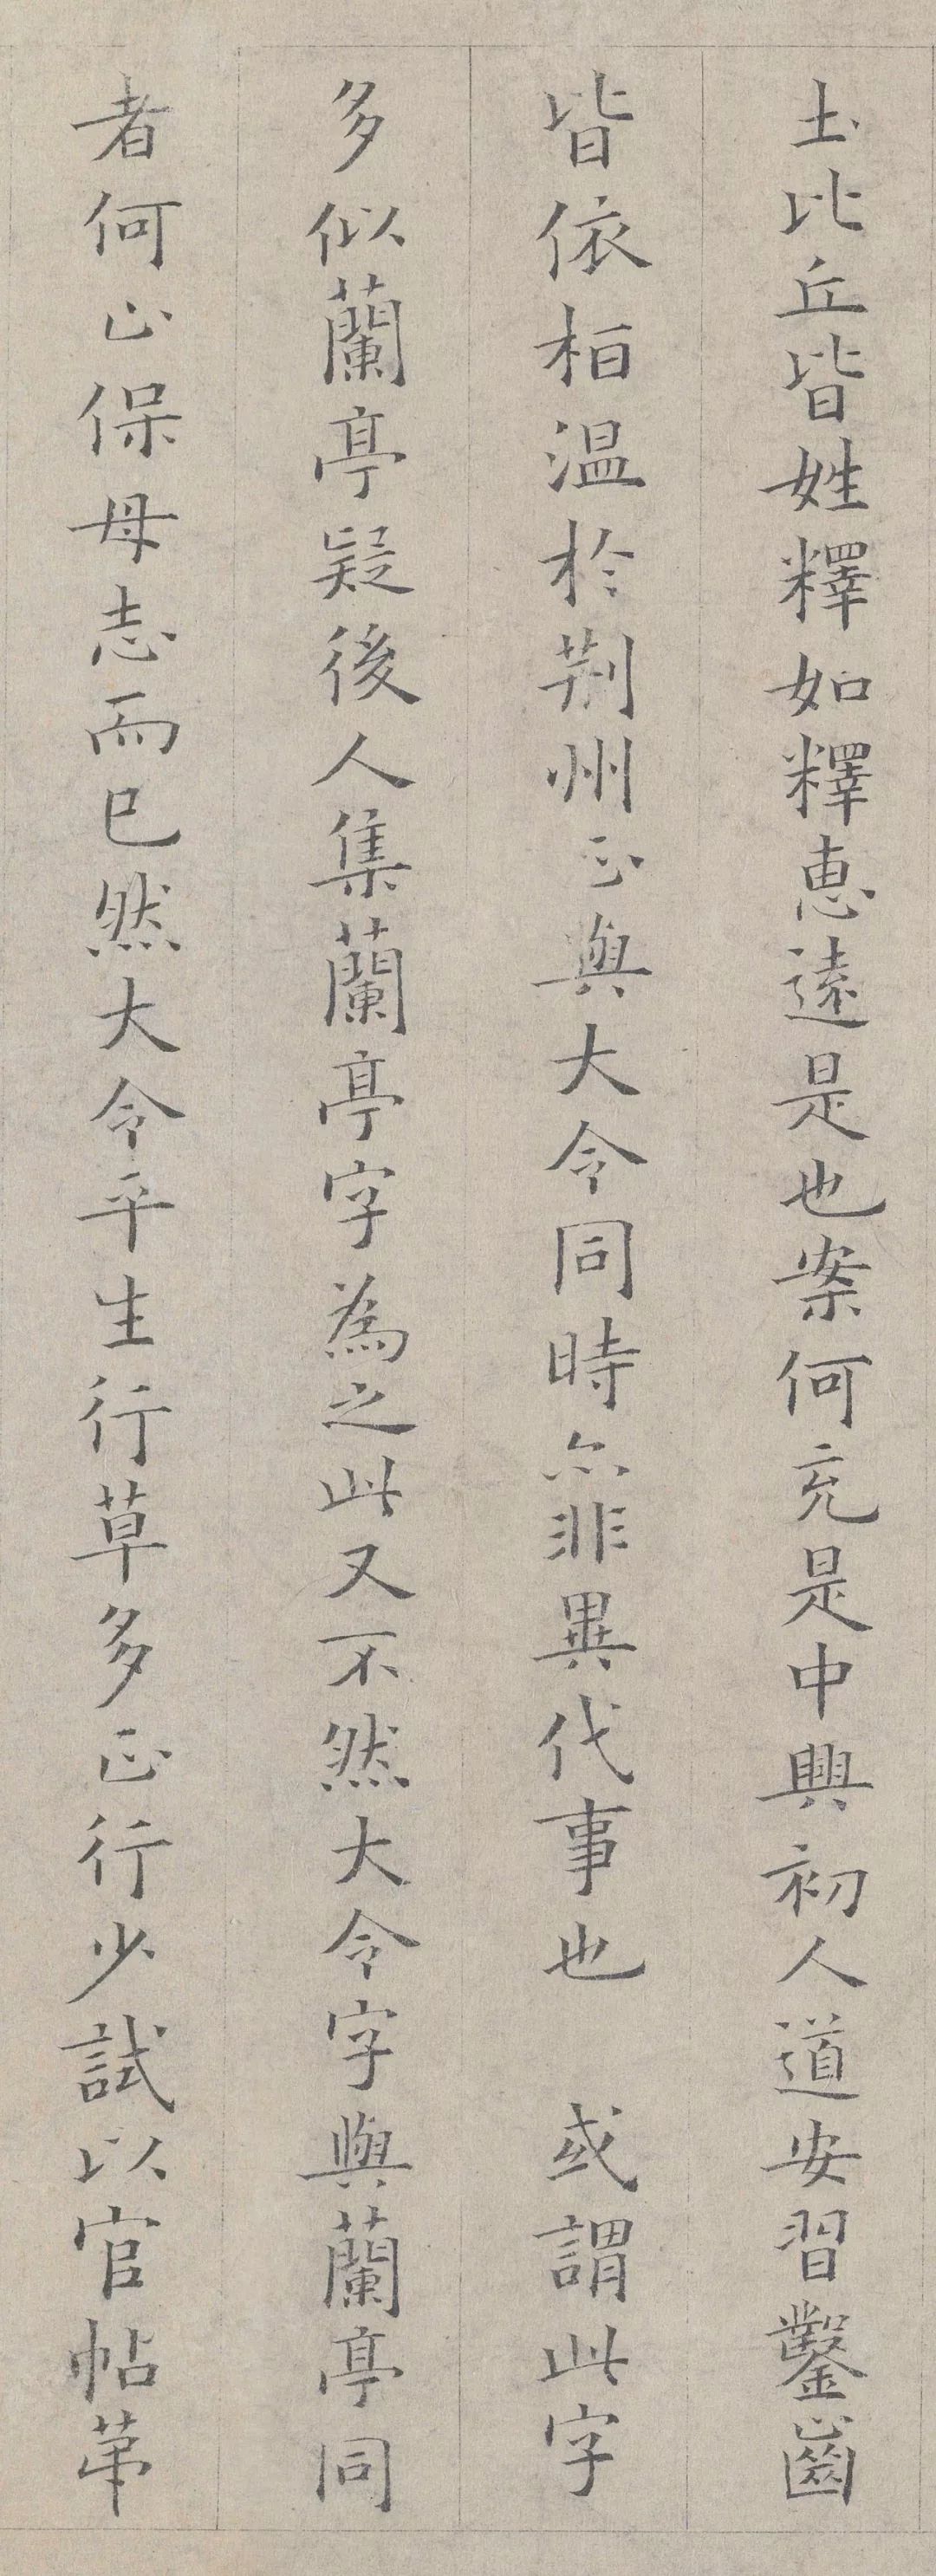 土比丘皆姓釋如釋惠遠是也案何充是中興初人道安習鑿齒
皆依桓温於荆州正與大令同時亦非異代事也 或謂此字
多似蘭亭疑後人集蘭亭字為之此又不然大令字與蘭亭同
者何止保母志而已然大令平生行草多正行少試以官帖苐